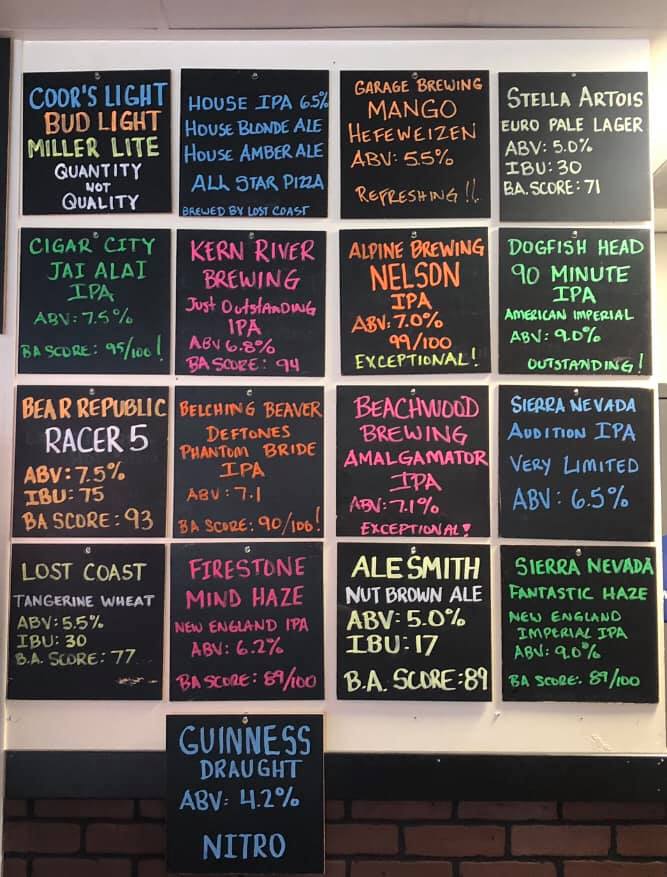 COOR'S LIGHT
BUD LIGHT
MILLER LITE
QUANTITY
NOT
QUALITY
HOUSE IPA 6.5%
HOUSE BLONDE ALE
HOUSE AMBER ALE
ALL STAR PIZZA
BREWED BY LOST COAST
GARAGE BREWING
MANGO
HEFEWEIZEN
ABV: 5.5%
REFRESHING!!
STELLA ARTOIS
EURO PALE LAGER
ABV: 5.0%
IBU: 30
B.A. SCORE: 71
CIGAR CITY
JAI ALAI
IPA
ABV: 7.5%
BA SCORE: 95/100!
KERN RIVER
BREWING
Just Outstanding
IPA
ABV 6.8%
BA SCORE: 94
ALPINE BREWING
NELSON
IPA
ABV: 7.0%
99/100
EXCEPTIONAL!
DOGFISH HEAD
90 MINUTE
IPA
AMERICAN IMPERIAL
ABV: 9.0%
OUTSTANDING!
BEAR REPUBLIC
RACER 5
ABV: 7.5%
IBU: 75
BA SCORE: 93
BELCHING BEAVER
DEFTONES
PHANTOM BRIDE
IPA
ABV: 7.1
BA SCORE: 90/100!
BEACHWOOD
BREWING
AMALGAMATOR
IPA
ABV: 7.1%
EXCEPTIONAL!
SIERRA NEVADA
AUDITION IPA
VERY LIMITED
ABV: 6.5%
LOST COAST
TANGERINE WHEAT
ABV: 5.5%
IBU: 30
B.A. SCORE: 77
FIRESTONE
MIND HAZE
NEW ENGLAND IPA
ABV: 6.2%
BA SCORE: 89/100
ALE SMITH
NUT BROWN ALE
ABV: 5.0%
IBU: 17
B.A. SCORE: 89
SIERRA NEVADA
FANTASTIC HAZE
NEW ENGLAND
IMPERIAL IPA
ABV: 9.0%
BA SCORE: 89/100
GUINNESS
DRAUGHT
ABV: 4.2%
NITRO